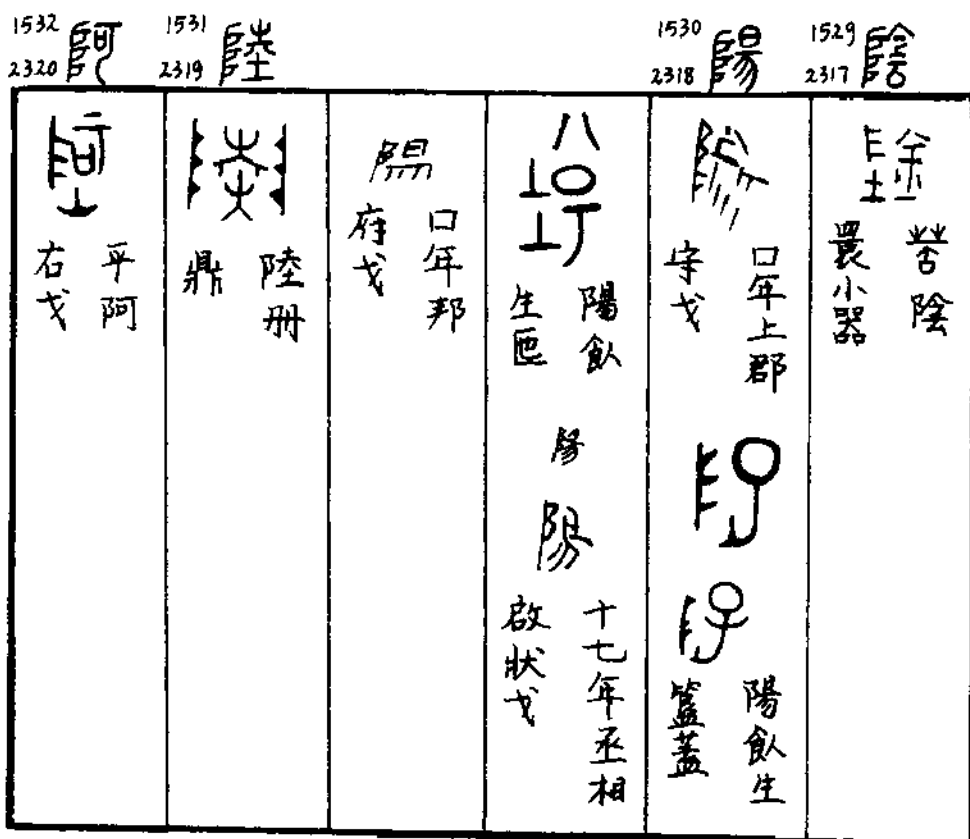 1529
2317
陰
苦陰
睘小器
1530
2318
陽
口年上郡
守戈
陽飤生
簋蓋
陽飤
生匜
陽
陽
十七年丞相
啟狀戈
陽
口年邦
府戈
1531
2319
陸
陸册
鼎
1532
2320
阿
平阿
右戈